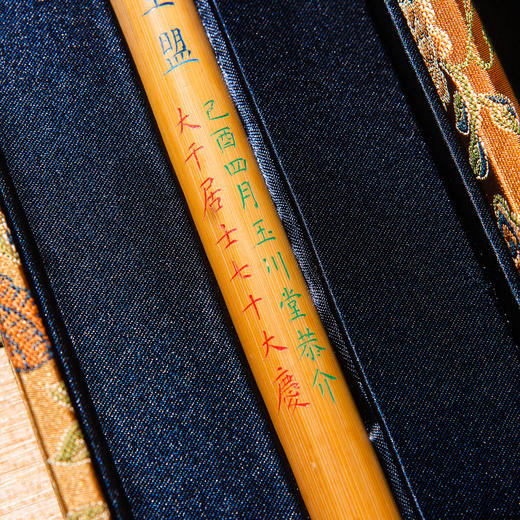 盟
己酉四月玉川堂恭介
大千居士七十大慶